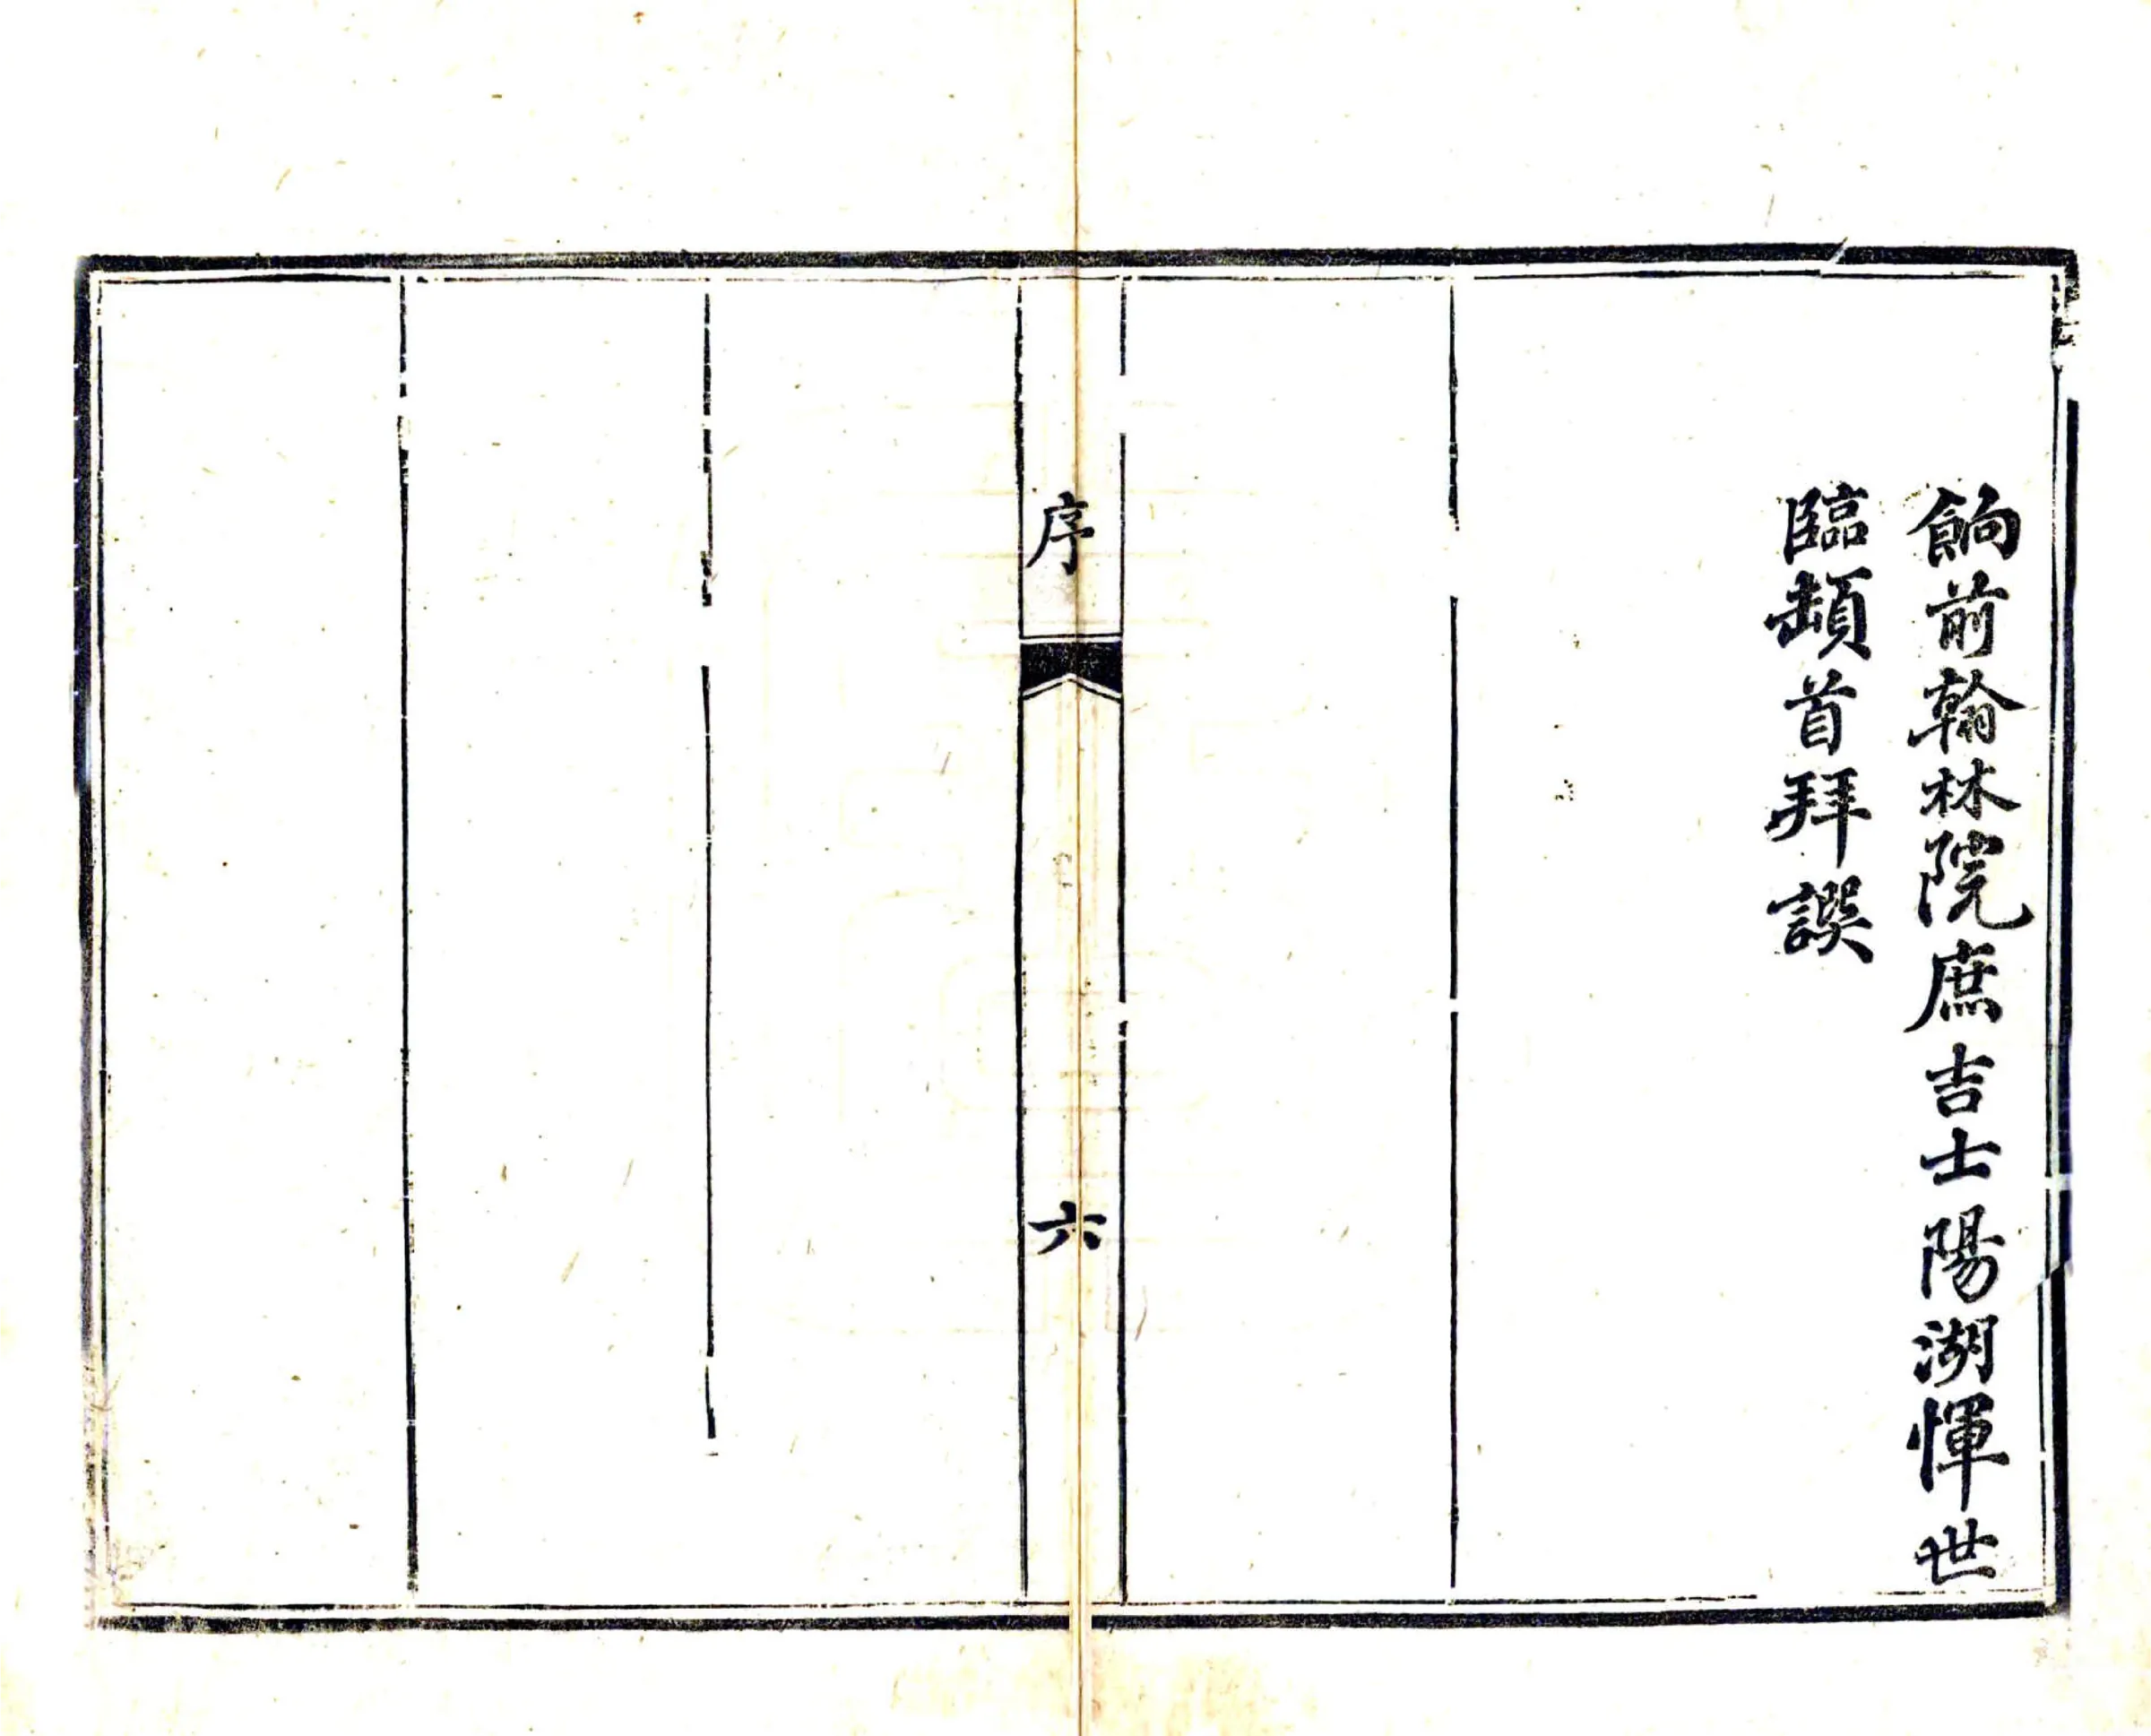 餉前翰林院庶吉士陽湖惲世
臨頓首拜譔
序
六